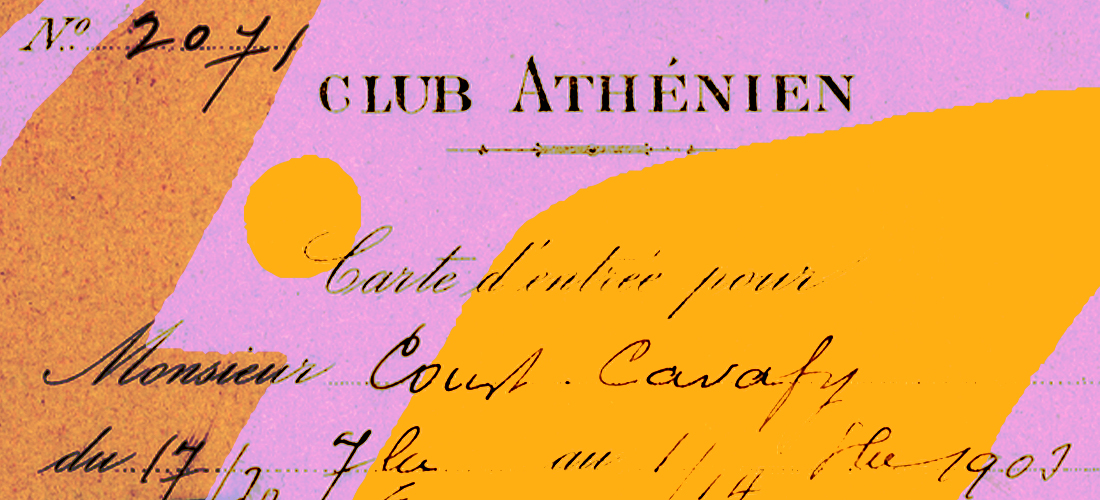 Nº 2071
CLUB ATHÉNIEN
Carte d'entrée pour
Monsieur Const. Cavafy
du 17/30 7bre au 1/14 8bre 1903